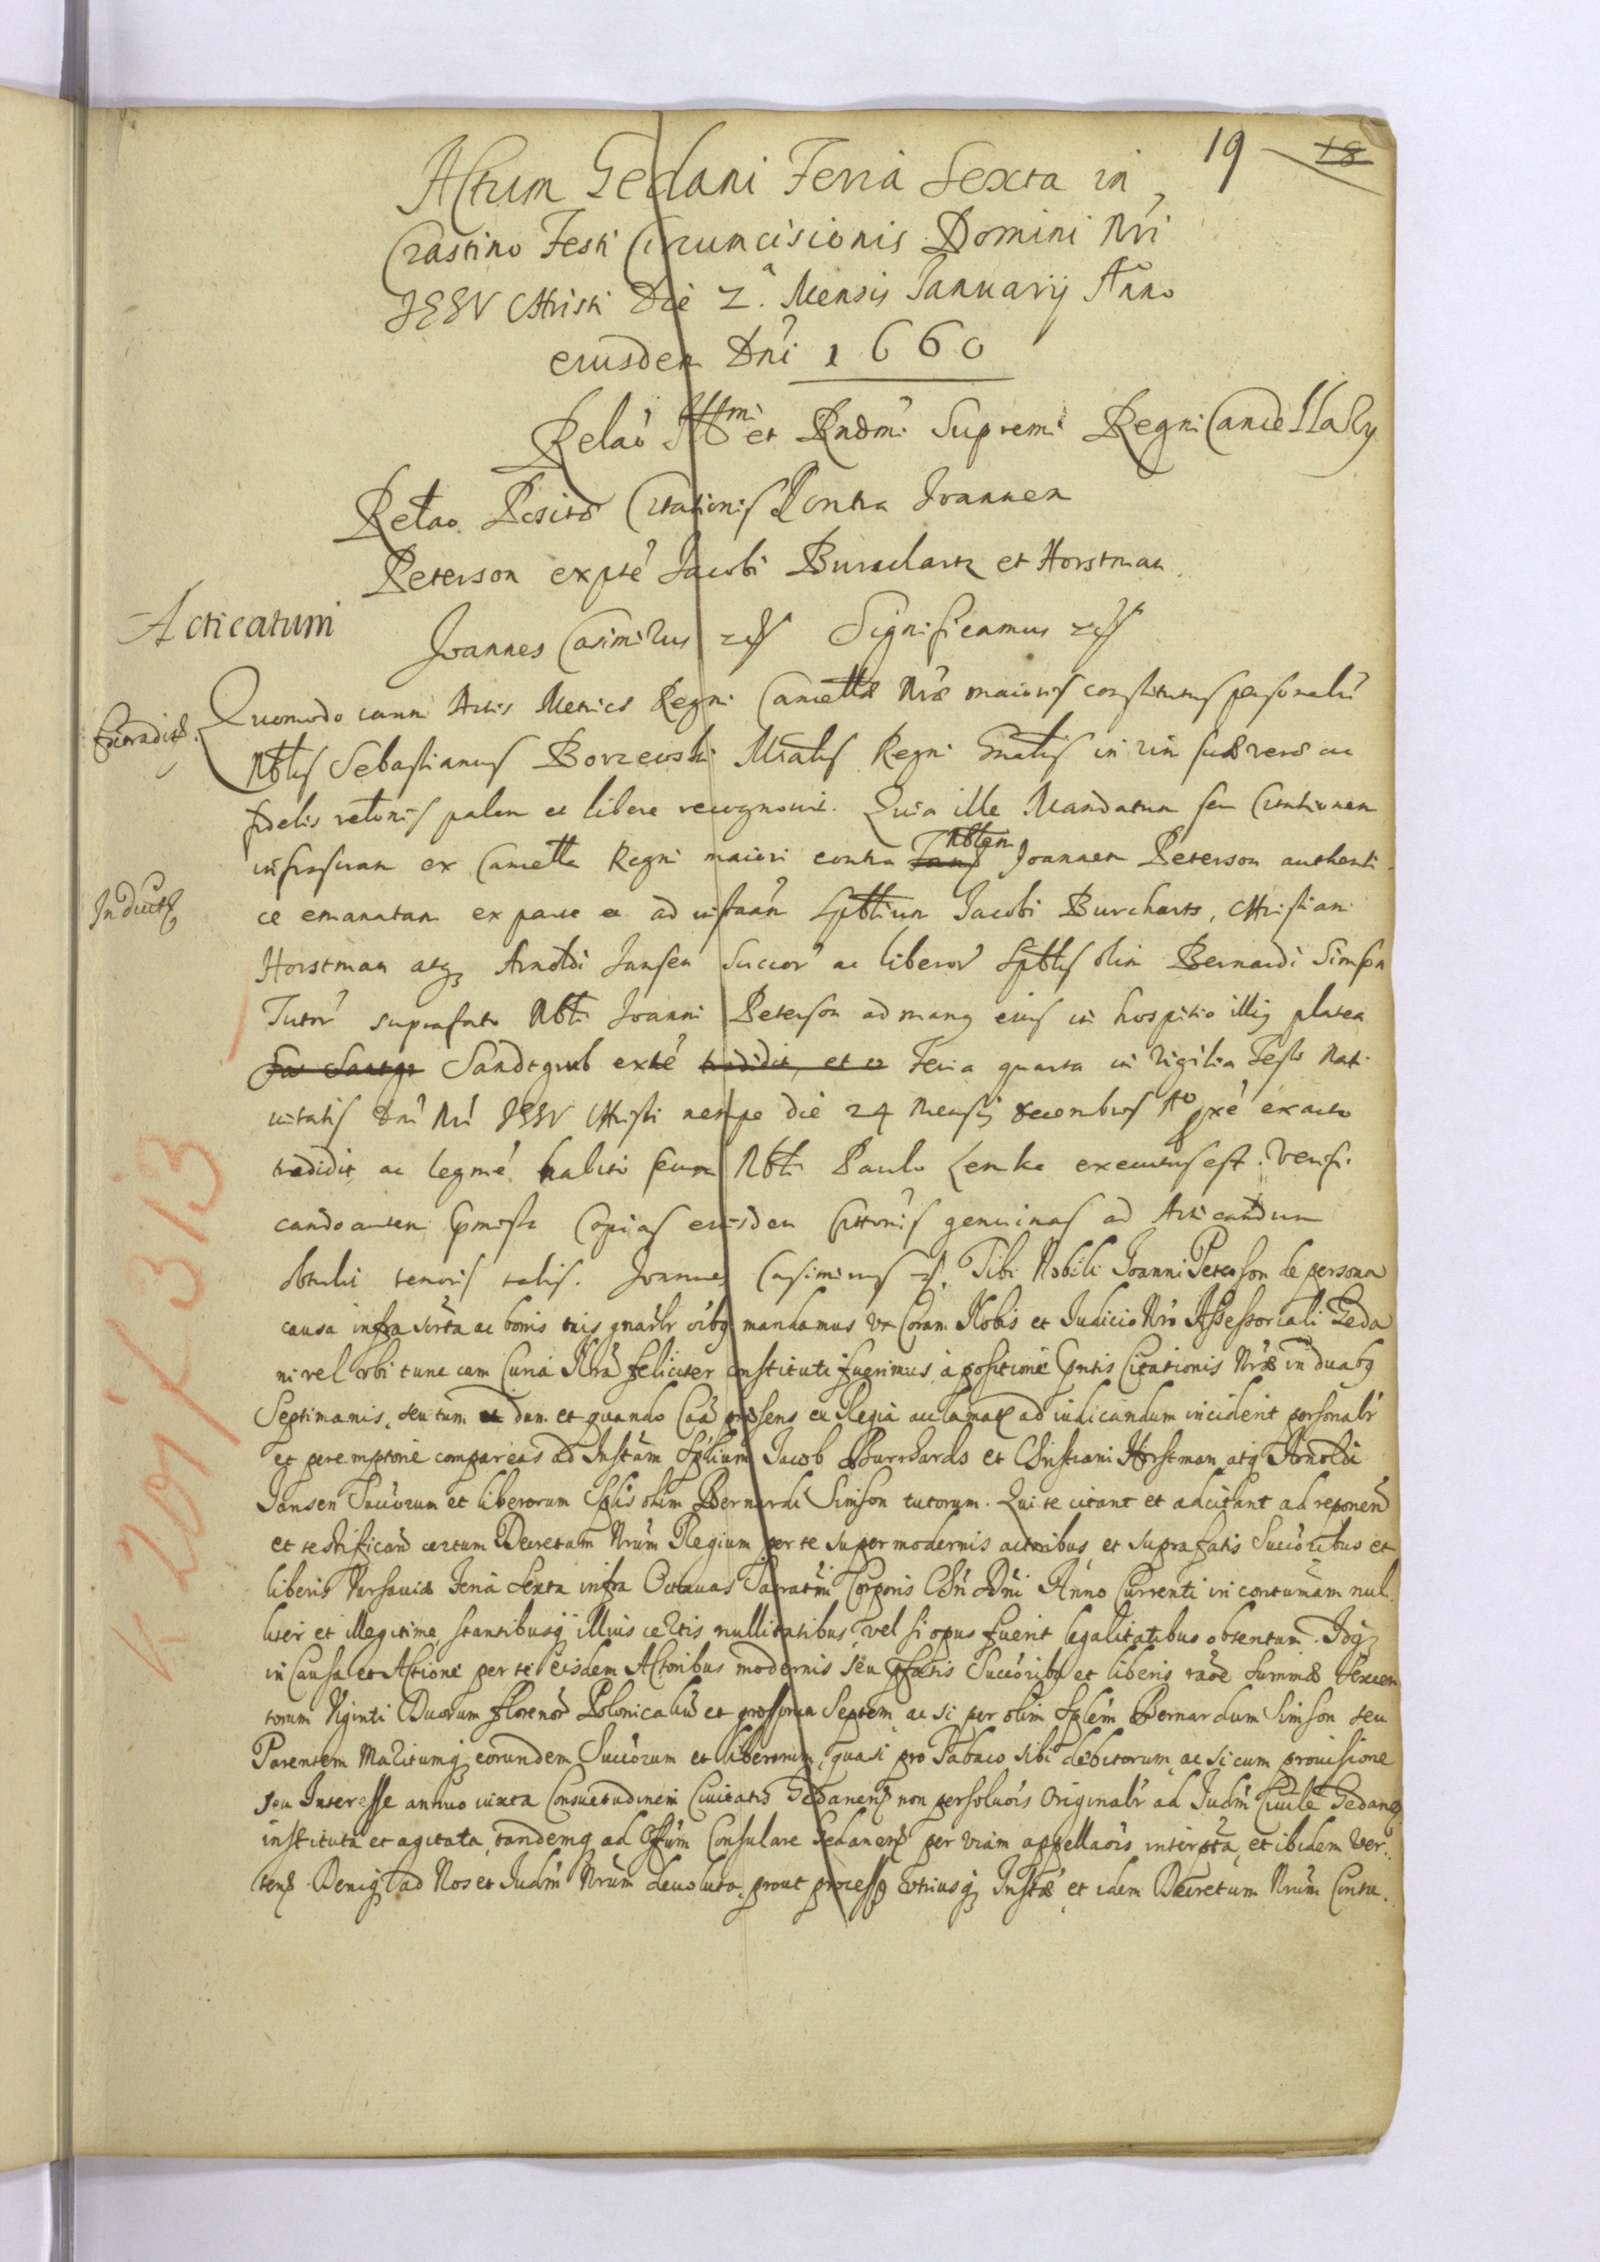 19 18
Actum Gedani Feria Sexta in
Crastino Festi Circumcisionis Domini Nri
JESV Christi Die 2.a Mensis Januarij Anno
eiusdem Dni 1660
Relao Illmi et Rndmi Supremi Regni Cancellary
Relao Positae Citationis Contra Joannem
Peterson ex pte Jacobi Burchartz et Horstman
Acticatum
Joannes Casimirus Significamus
Quomodo coram Actis Metrices Regni Cancellae Nrae maioris constitutus personalr
Extradit.
Nblis Sebastianus Borzewski Mrialis Regni Gnalis in vim suae verae ac
fidelis relonis palam et libere recognovit. Quia ille Mandatum seu Citationem
infrascram ex Cancella Regni maiori contra Nblem Joannem Peterson authenti
Induct
ce emanatam ex parte et ad instaan Spblium Jacobi Burcharts, Christiani
Horstman atq Arnoldi Jansen Succor ac liberor Spblis olim Bernardi Simson
Tutor suprafato Nbli Joanni Peterson ad manq eius in hospitio illiq platea
Sandtgrub exte tradidit, et Feria quarta in Vigilia Festi Nati
uitatis Dni Nri JESV Christi nempe die 24 Mensis Decembris Ao pxe exacto
tradidit, ac legme habito secum Nbli Paulo Lemke executus est. Verifi
cando autem Copias eiusdem Cittonis genuinas ad Acticandum
obtulit tenoris talis. Joannes Casimirus Tibi Nobili Joanni Peterson de persona
causa infra scrta ac bonis tuis gnalr oibq mandamus vt Coram Nobis et Judicio Nro Assessoriali Geda
ni vel vbi tunc cum Curia Nra feliciter constituti fuerimus, a positione Pntis Citationis Nrae in duabq
Septimanis, seu tum dum et quando Caa praesens ex Regia acclamae ad iudicandum inciderit personalr
et peremptorie compareas ad Instam Spblium Jacob Burchards et Christiani Horstman atq Arnoldi
Jansen Succorum et liberorum Spblis olim Bernardi Simson tutorum. Qui te citant et adcitant ad reponend
et rectificand certum Decretum Nrum Regium per te super modernis actoribus, et suprafatis Succoribus et
liberis Varsaviae Feria Sexta infra Octauas Sacratmi Corporis Chri Dni Anno Currenti in contumam nul
liter et illegitime stantibusq illius certis nullitatibus, vel si opus fuerit legalitatibus obtentum. Idq
in Causa et Actione per te eisdem Actoribus modernis seu pfatis Succoribq et liberis raoe Summae Sexcen
torum Viginti Duorum florenor Polonicaliu et grossorum Septem, ac si per olim Spblem Bernardum Simson seu
Parentem Maritumq eorundem Succorum et liberorum, quasi pro Tabaco sibi debitorum, ac si cum prouisione
seu Interesse annuo iuxta Consuetudinem Ciuitatis Gedanens non persoluois Originalr ad Judm Ciuile Gedanen
instituta et agitata, tandemq ad Offum Consulare Gedanens per viam appellaois interpta, et ibidem Ver
tens. Deniq ad Nos et Judm Nrum deuoluta, prout process vtriusq Instae et idem Decretum Nrum Contu